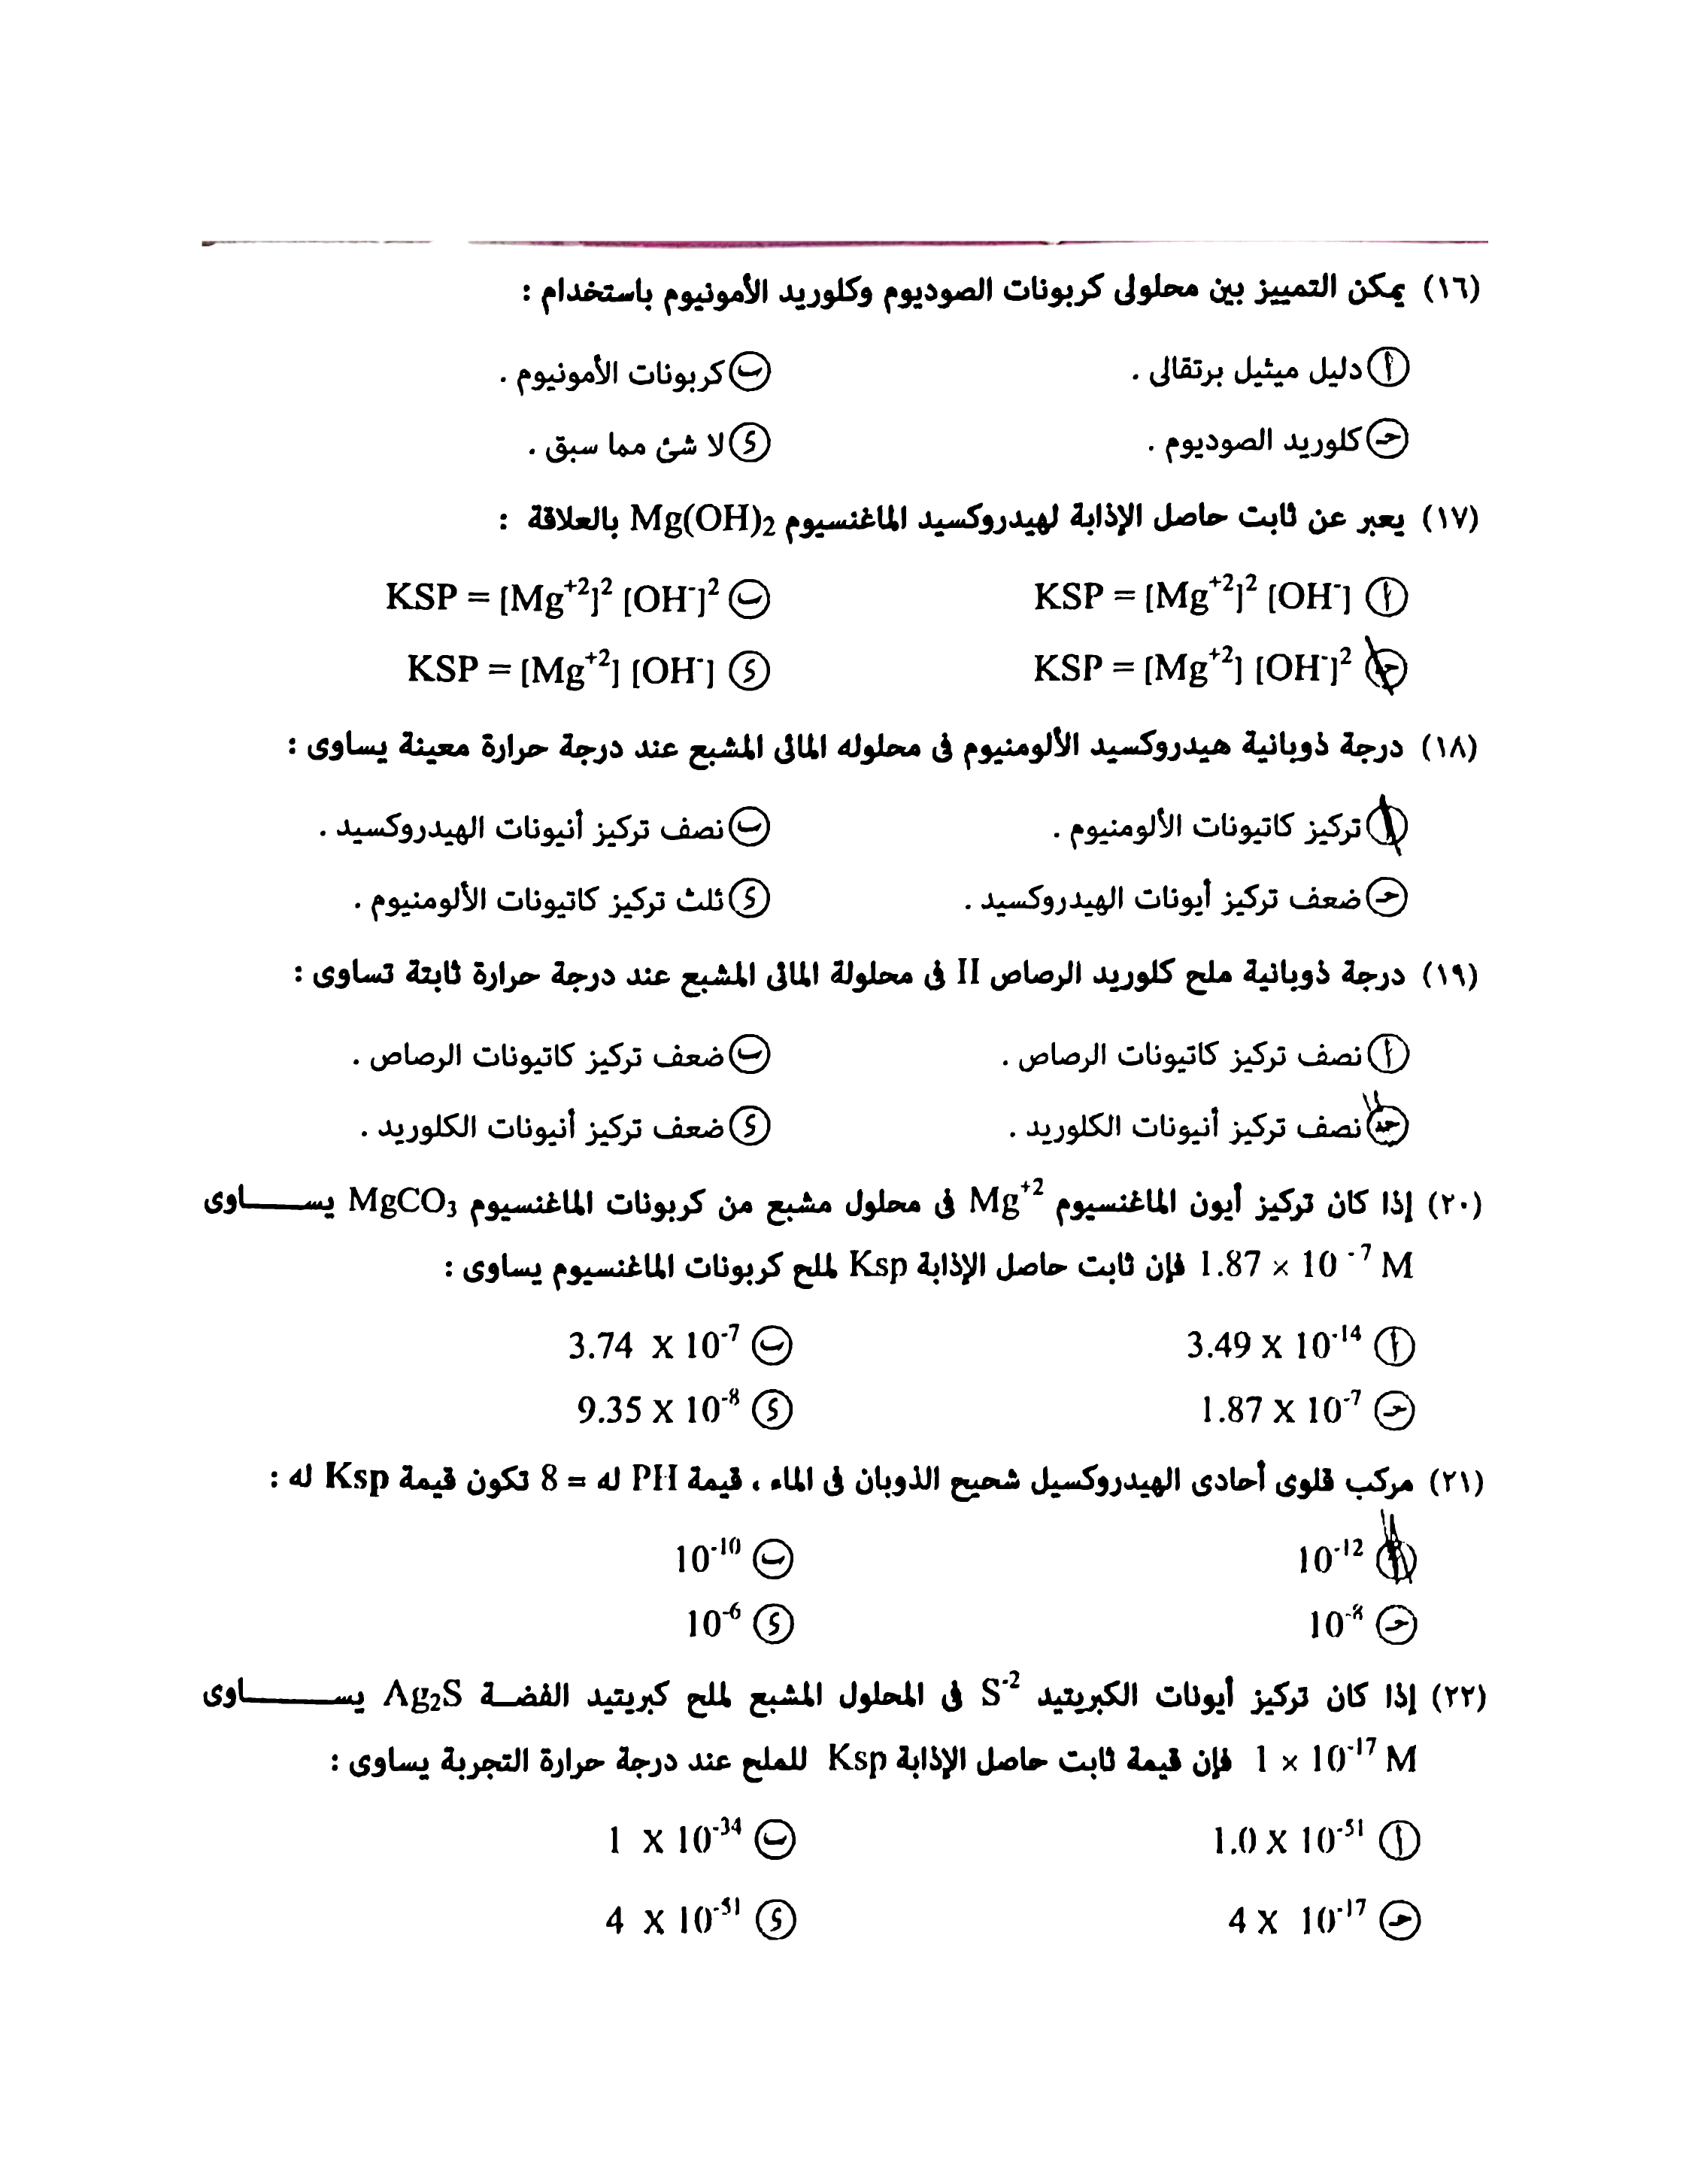 (١٦) يمكن التمييز بين محلولى كربونات الصوديوم وكلوريد الأمونيوم باستخدام :
أ دليل ميثيل برتقالى . ب كربونات الأمونيوم .
حـ كلوريد الصوديوم . ء لا شئ مما سبق .
(١٧) يعبر عن ثابت حاصل الإذابة لهيدروكسيد الماغنسيوم Mg(OH)₂ بالعلاقة :
أ KSP = [Mg⁺²]² [OH⁻] ب KSP = [Mg⁺²]² [OH⁻]²
حـ KSP = [Mg⁺²] [OH⁻]² ء KSP = [Mg⁺²] [OH⁻]
(١٨) درجة ذوبانية هيدروكسيد الألومنيوم فى محلوله المائى المشبع عند درجة حرارة معينة يساوى :
أ تركيز كاتيونات الألومنيوم . ب نصف تركيز أنيونات الهيدروكسيد .
حـ ضعف تركيز أيونات الهيدروكسيد . ء ثلث تركيز كاتيونات الألومنيوم .
(١٩) درجة ذوبانية ملح كلوريد الرصاص II فى محلولة المائى المشبع عند درجة حرارة ثابتة تساوى :
أ نصف تركيز كاتيونات الرصاص . ب ضعف تركيز كاتيونات الرصاص .
حـ نصف تركيز أنيونات الكلوريد . ء ضعف تركيز أنيونات الكلوريد .
(٢٠) إذا كان تركيز أيون الماغنسيوم Mg⁺² فى محلول مشبع من كربونات الماغنسيوم MgCO₃ يســـاوى
1.87 × 10⁻⁷ M فإن ثابت حاصل الإذابة Ksp لملح كربونات الماغنسيوم يساوى :
أ 3.49 X 10⁻¹⁴ ب 3.74 X 10⁻⁷
حـ 1.87 X 10⁻⁷ ء 9.35 X 10⁻⁸
(٢١) مركب قلوى أحادى الهيدروكسيل شحيح الذوبان فى الماء ، قيمة PH له = 8 تكون قيمة Ksp له :
أ 10⁻¹² ب 10⁻¹⁰
حـ 10⁻⁸ ء 10⁻⁶
(٢٢) إذا كان تركيز أيونات الكبريتيد S⁻² فى المحلول المشبع لملح كبريتيد الفضـة Ag₂S يســـاوى
1 × 10⁻¹⁷ M فإن قيمة ثابت حاصل الإذابة Ksp للملح عند درجة حرارة التجربة يساوى :
أ 1.0 X 10⁻⁵¹ ب 1 X 10⁻³⁴
حـ 4 X 10⁻¹⁷ ء 4 X 10⁻⁵¹